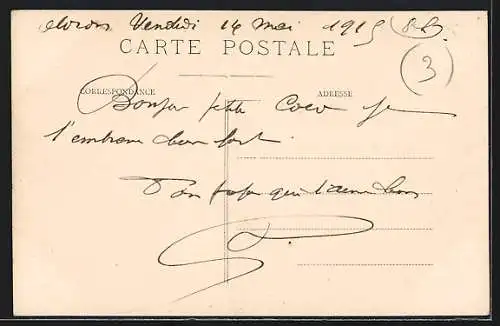 Vendredi 14 mai 1915
CARTE POSTALE
3
CORRESPONDANCE ADRESSE
Bonjour petite Coco je
t'embrasse bien fort
Ton papa qui t'aime bien